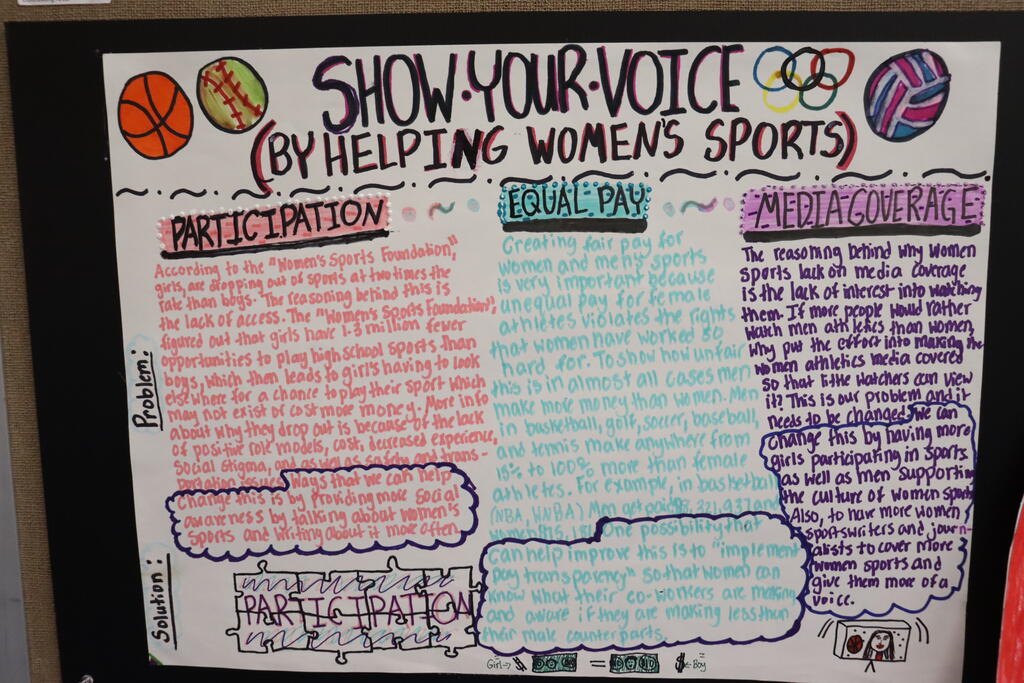 SHOW·YOUR·VOICE
(BY HELPING WOMEN'S SPORTS)
PARTICIPATION
According to the "Women's Sports Foundation",
girls, are dropping out of sports at two times the
rate than boys. The reasoning behind this is
the lack of access. The "Women's Sports Foundation",
figured out that girls have 1.3 million fewer
opportunities to play high school sports than
boys, which then leads to girl's having to look
elsewhere for a chance to play their sport which
may not exist or cost more money. More info
about why they drop out is because of the lack
of positive role models, cost, decreased experience,
social stigma, and as well as safety and trans-
portation issues. Ways that we can help
change this is by providing more social
awareness by talking about women's
sports and writing about it more often.
PARTICIPATION
EQUAL PAY
Creating fair pay for
women and men's sports
is very important because
unequal pay for female
athletes violates the rights
that women have worked so
hard for. To show how unfair
this is in almost all cases men
make more money than women. Men
in basketball, golf, soccer, baseball,
and tennis make anywhere from
15% to 100% more than female
athletes. For example, in basketball
(NBA, WNBA) Men get paid
women's is One possibility that
can help improve this is to "implement
pay transparency" so that women can
know what their co-workers are making
and aware if they are making less than
their male counterparts.
Girl→ $ = $ ←Boy
MEDIA COVERAGE
The reasoning behind why women
sports lack on media coverage
is the lack of interest into watching
them. If more people would rather
watch men athletics than women,
why put the effort into making the
women athletics media covered
so that little watchers can view
it? This is our problem and it
needs to be changed. We can
change this by having more
girls participating in sports
as well as men supporting
the culture of women sports
Also, to have more women
sportswriters and journ-
alists to cover more
women sports and
give them more of a
voice.
Problem:
Solution: